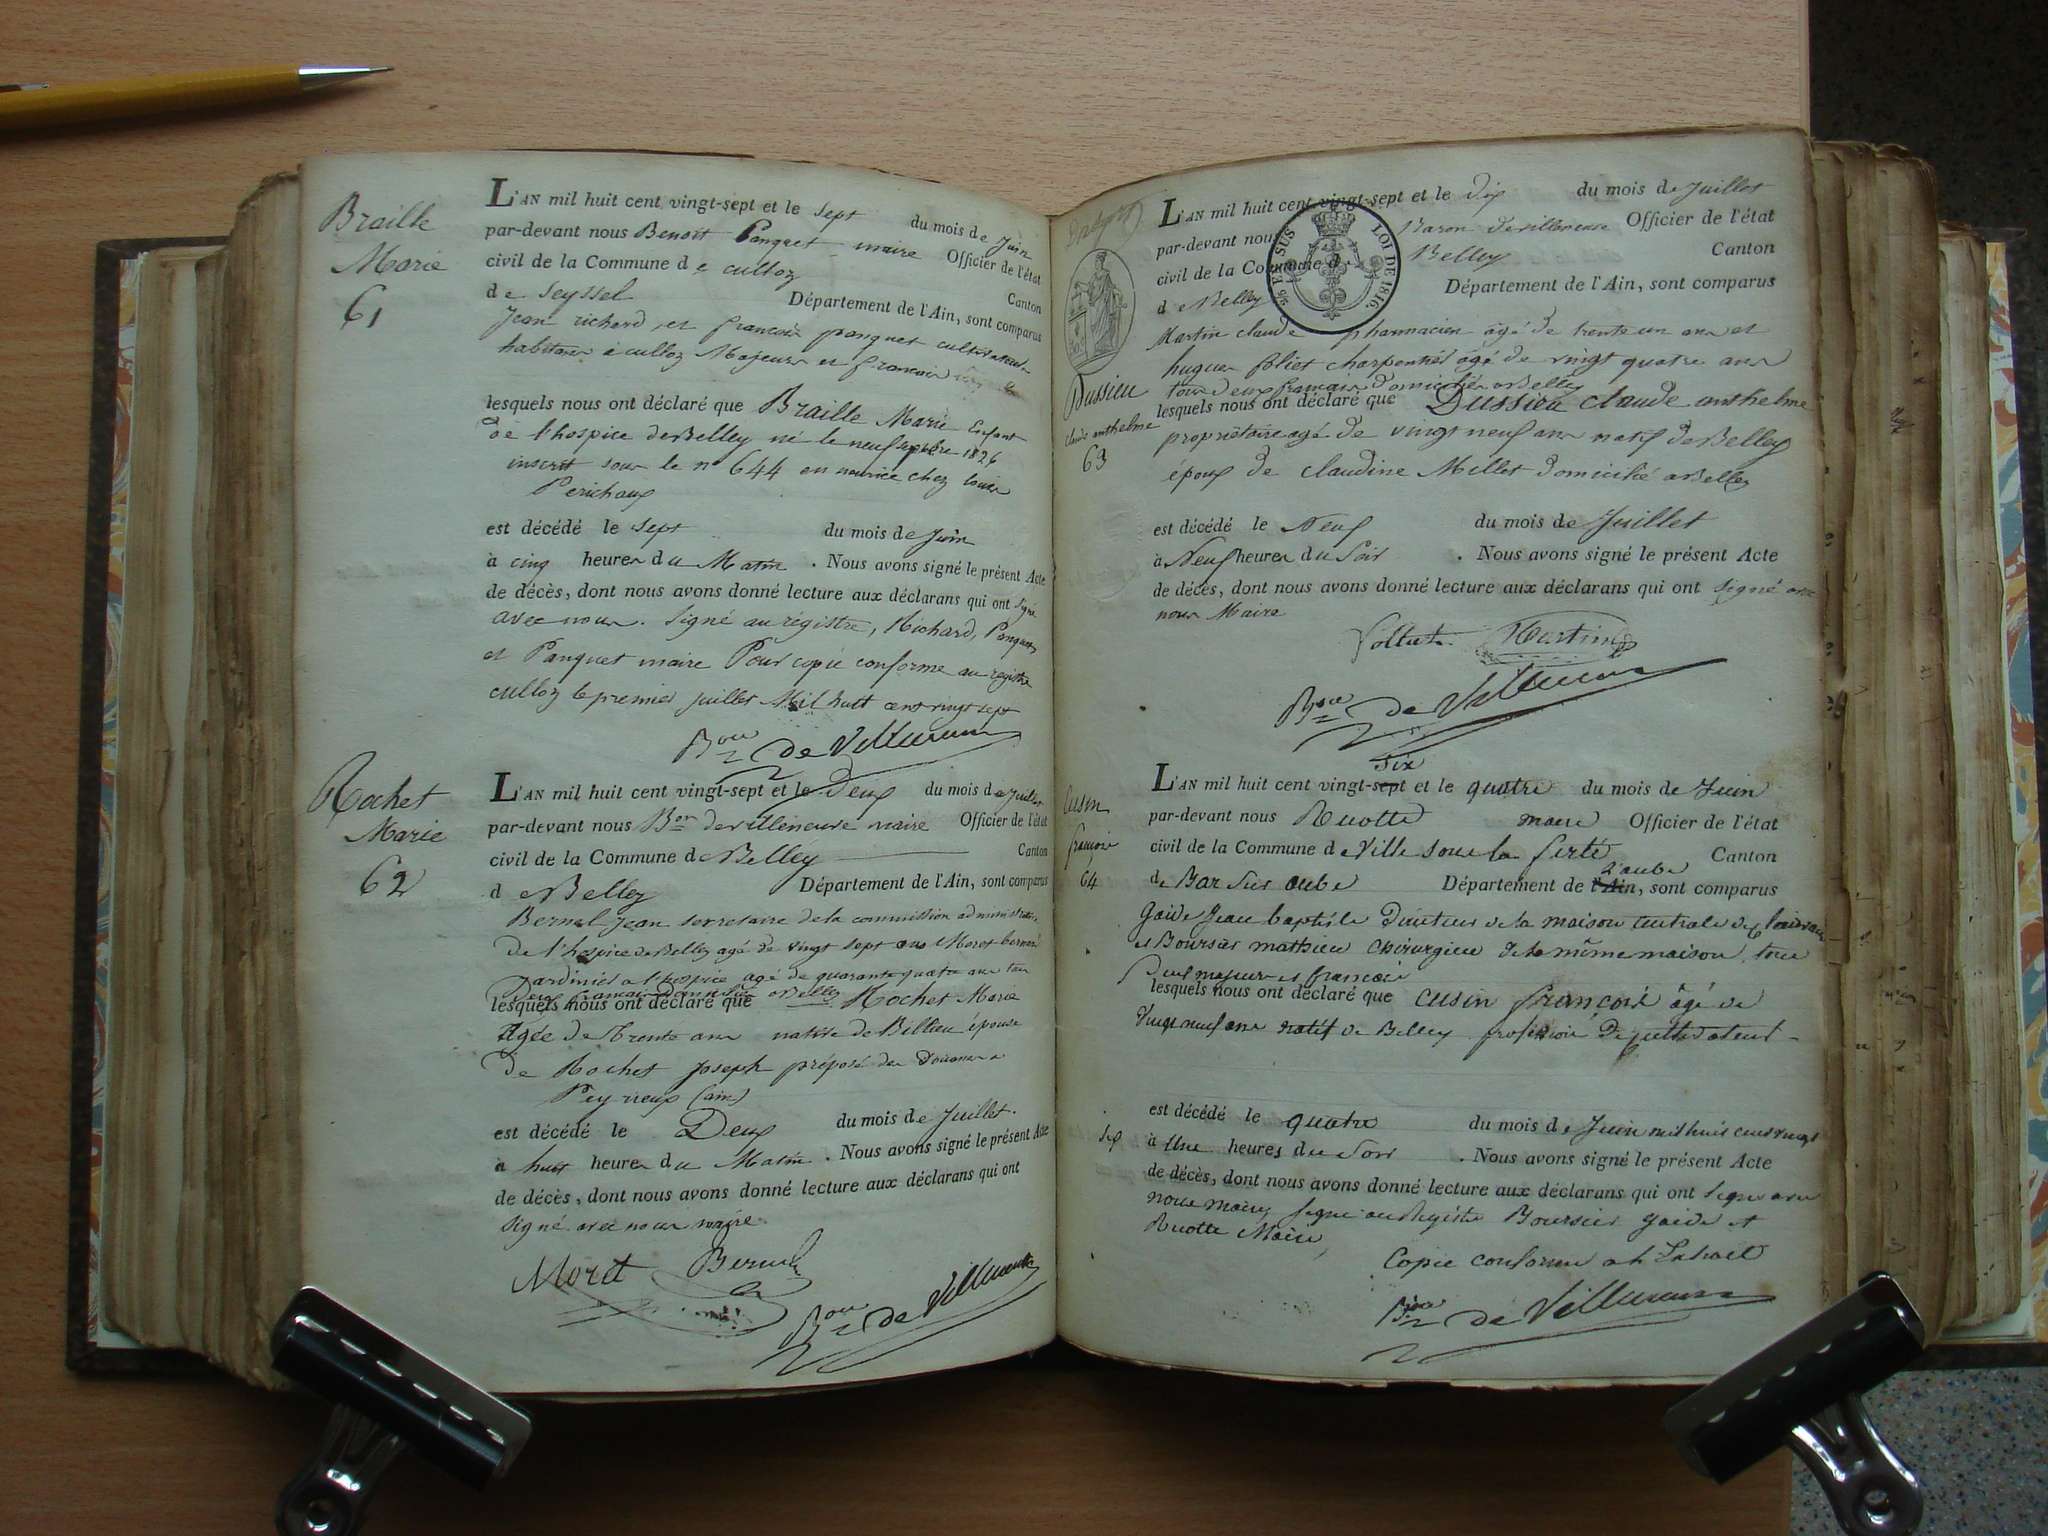 Braille
Marie
61
L'AN mil huit cent vingt-sept et le sept du mois de Juin
par-devant nous Benoit Panquet maire Officier de l'état
civil de la Commune de culloz Canton
de Seyssel Département de l'Ain, sont comparus
Jean richard et francois panquet cultivateurs
habitans a culloz Majeurs et francais
lesquels nous ont déclaré que Braille Marie Enfant
de l'hospice de Belley né le neuf 1826
inscrit sous le n° 644 en nourice chez louise
Perichoux
est décédé le sept du mois de Juin
à cinq heures du Matin. Nous avons signé le présent Acte
de décès, dont nous avons donné lecture aux déclarans qui ont signé
avec nous. Signé au régistre, Richard, Panquet
et Panquet maire Pour copie conforme au registre
culloz le premier juillet Mil huit cent vingt sept
Bon de Villeneuve
Rochet
Marie
62
L'AN mil huit cent vingt-sept et le Deux du mois de Juillet
par-devant nous Bon de villeneuve maire Officier de l'état
civil de la Commune de Belley Canton
de Belley Département de l'Ain, sont comparus
Bernel Jean secretaire de la commission administrative
de l'hospice de Belley agé de vingt sept ans Moret bernard
Jardinier a l'hospice agé de quarante quatre ans tous
deux francais Domiciliés a Belley
lesquels nous ont déclaré que Rochet Marie
Agée de trente ans native de Billieu épouse
de Rochet Joseph préposé des Douanes a
Peyrieux (ain)
est décédé le Deux du mois de Juillet.
à huit heures du Matin. Nous avons signé le présent Acte
de décès, dont nous avons donné lecture aux déclarans qui ont
signé avec nous maire
Moret Bernel
Bon de Villeneuve
L'AN mil huit cent vingt-sept et le dix du mois de Juillet
par-devant nous Baron de villeneuve Officier de l'état
civil de la Commune de Belley Canton
de Belley Département de l'Ain, sont comparus
EN SUS LOI DE 1816.
Martin claude pharmacien âgé de trente un ans et
hugues foliet charpentier âgé de vingt quatre ans
tous deux francais domiciliés a Belley
Dussieu
claude anthelme
63
lesquels nous ont déclaré que Dussieu claude anthelme
propriétaire agé de vingt neuf ans natif de Belley
époux de claudine Millet domicilié a Belley
est décédé le Neuf du mois de Juillet
à Neuf heures du Soir. Nous avons signé le présent Acte
de décès, dont nous avons donné lecture aux déclarans qui ont signé avec
nous Maire
Martin
Bon de Villeneuve
Cusin
françois
64
six
L'AN mil huit cent vingt-sept et le quatre du mois de Juin
par-devant nous Ruotte maire Officier de l'état
civil de la Commune de Ville sous la ferté Canton
de Bar sur aube Département de l'Ain, sont comparus
L'aube
Gaide Jean baptiste Directeur de la maison centrale de
et Boursier mathieu chirurgien de la même maison, tous
deux majeurs et francais
lesquels nous ont déclaré que cusin françois âgé de
vingt neuf ans natif de Belley profession de cultivateur
est décédé le quatre du mois de Juin mil huit cent vingt
six
à Une heures du Soir. Nous avons signé le présent Acte
de décès, dont nous avons donné lecture aux déclarans qui ont signé avec
nous maire, signé au Registre Boursier Gaide et
Ruotte Maire,
Copie conforme a l'extrait
Bon de Villeneuve